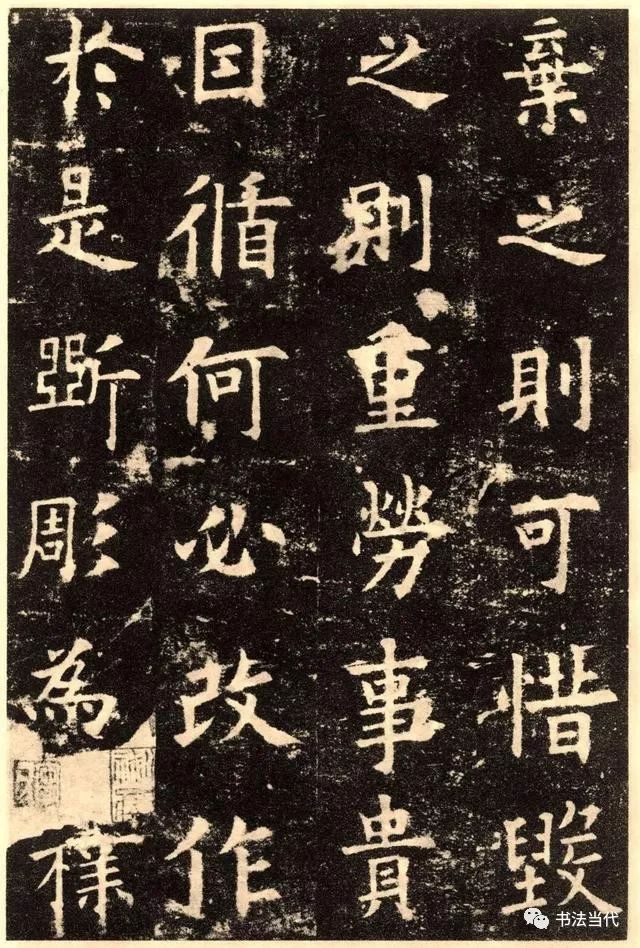 棄之則可惜毀
之則重勞事貴
因循何必改作
於是斲彫為樸
书法当代